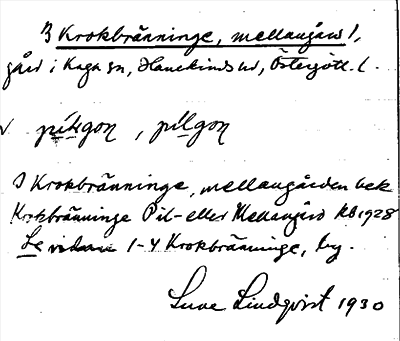 3 Krokbränninge, mellangård 1,
gård i Kaga sn, Hanekinds hd, Östergötl. l.
v pilgon, pilgon
3 Krokbränninge, mellangården bek
Krokbränninge Pil- eller Mellangård KB 1928
Se vidare 1-4 Krokbränninge, by.
Sune Lindqvist 1930